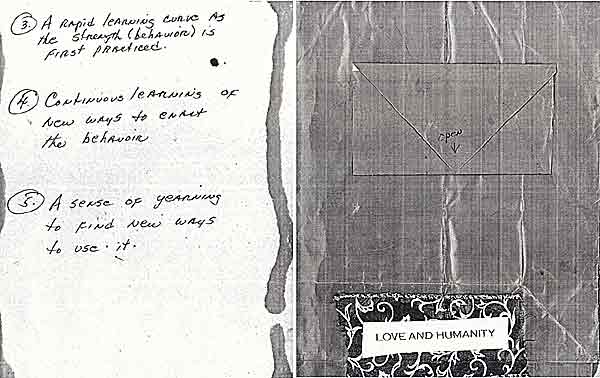 3. A RAPID LEARNING CURVE AS
the STRENGTH (behavior) is
FIRST PRACTICED.
4. CONTINUOUS LEARNING OF
NEW WAYS TO ENACT
the behavior
5. A SENSE OF YEARNING
to FIND NEW WAYS
to USE it.
open
LOVE AND HUMANITY